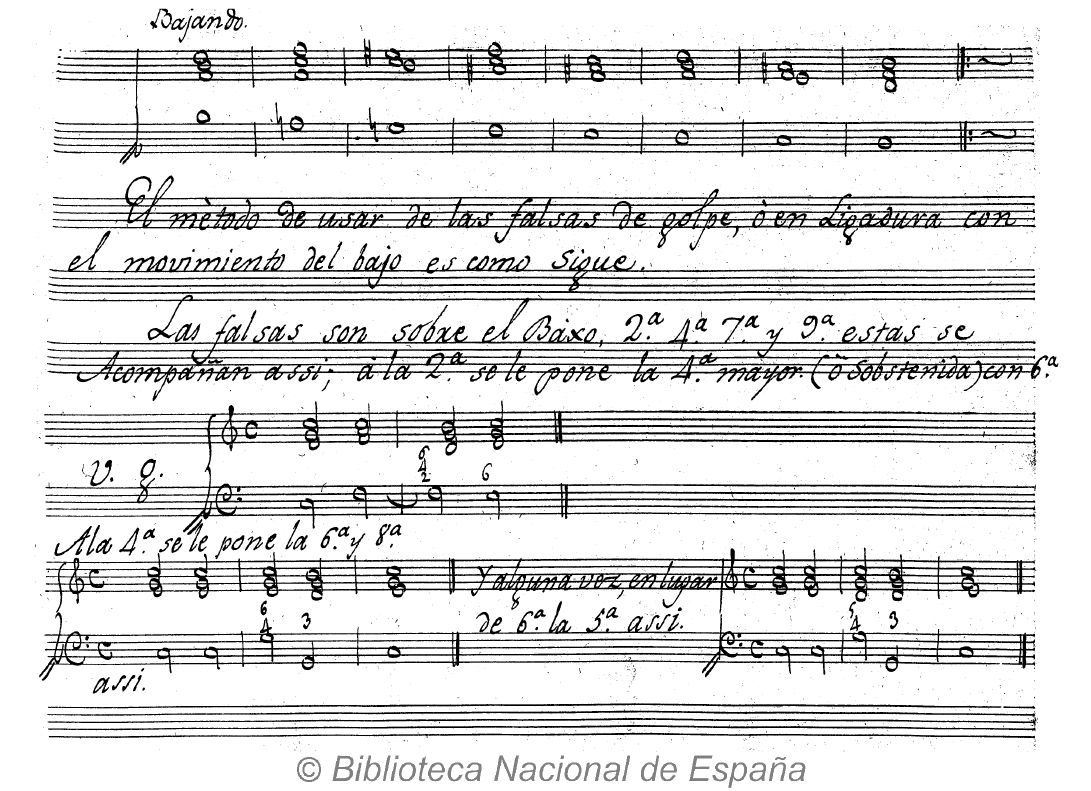 Bajando.
El mètodo de usar de las falsas de golpe, ò en Ligadura con
el movimiento del bajo es como Sigue.
Las falsas son sobre el Baxo, 2.ª 4.ª 7.ª y 9.ª estas se
Acompañan assi; à la 2.ª se le pone la 4.ª mayor. (ò Sobstenida) con 6.ª
6
4
2 6
V. g.
A la 4.ª se le pone la 6.ª y 8.ª
Y alguna vez, en lugar
de 6.ª la 5.ª assi.
6
4 3
5
4 3
assi.
© Biblioteca Nacional de España